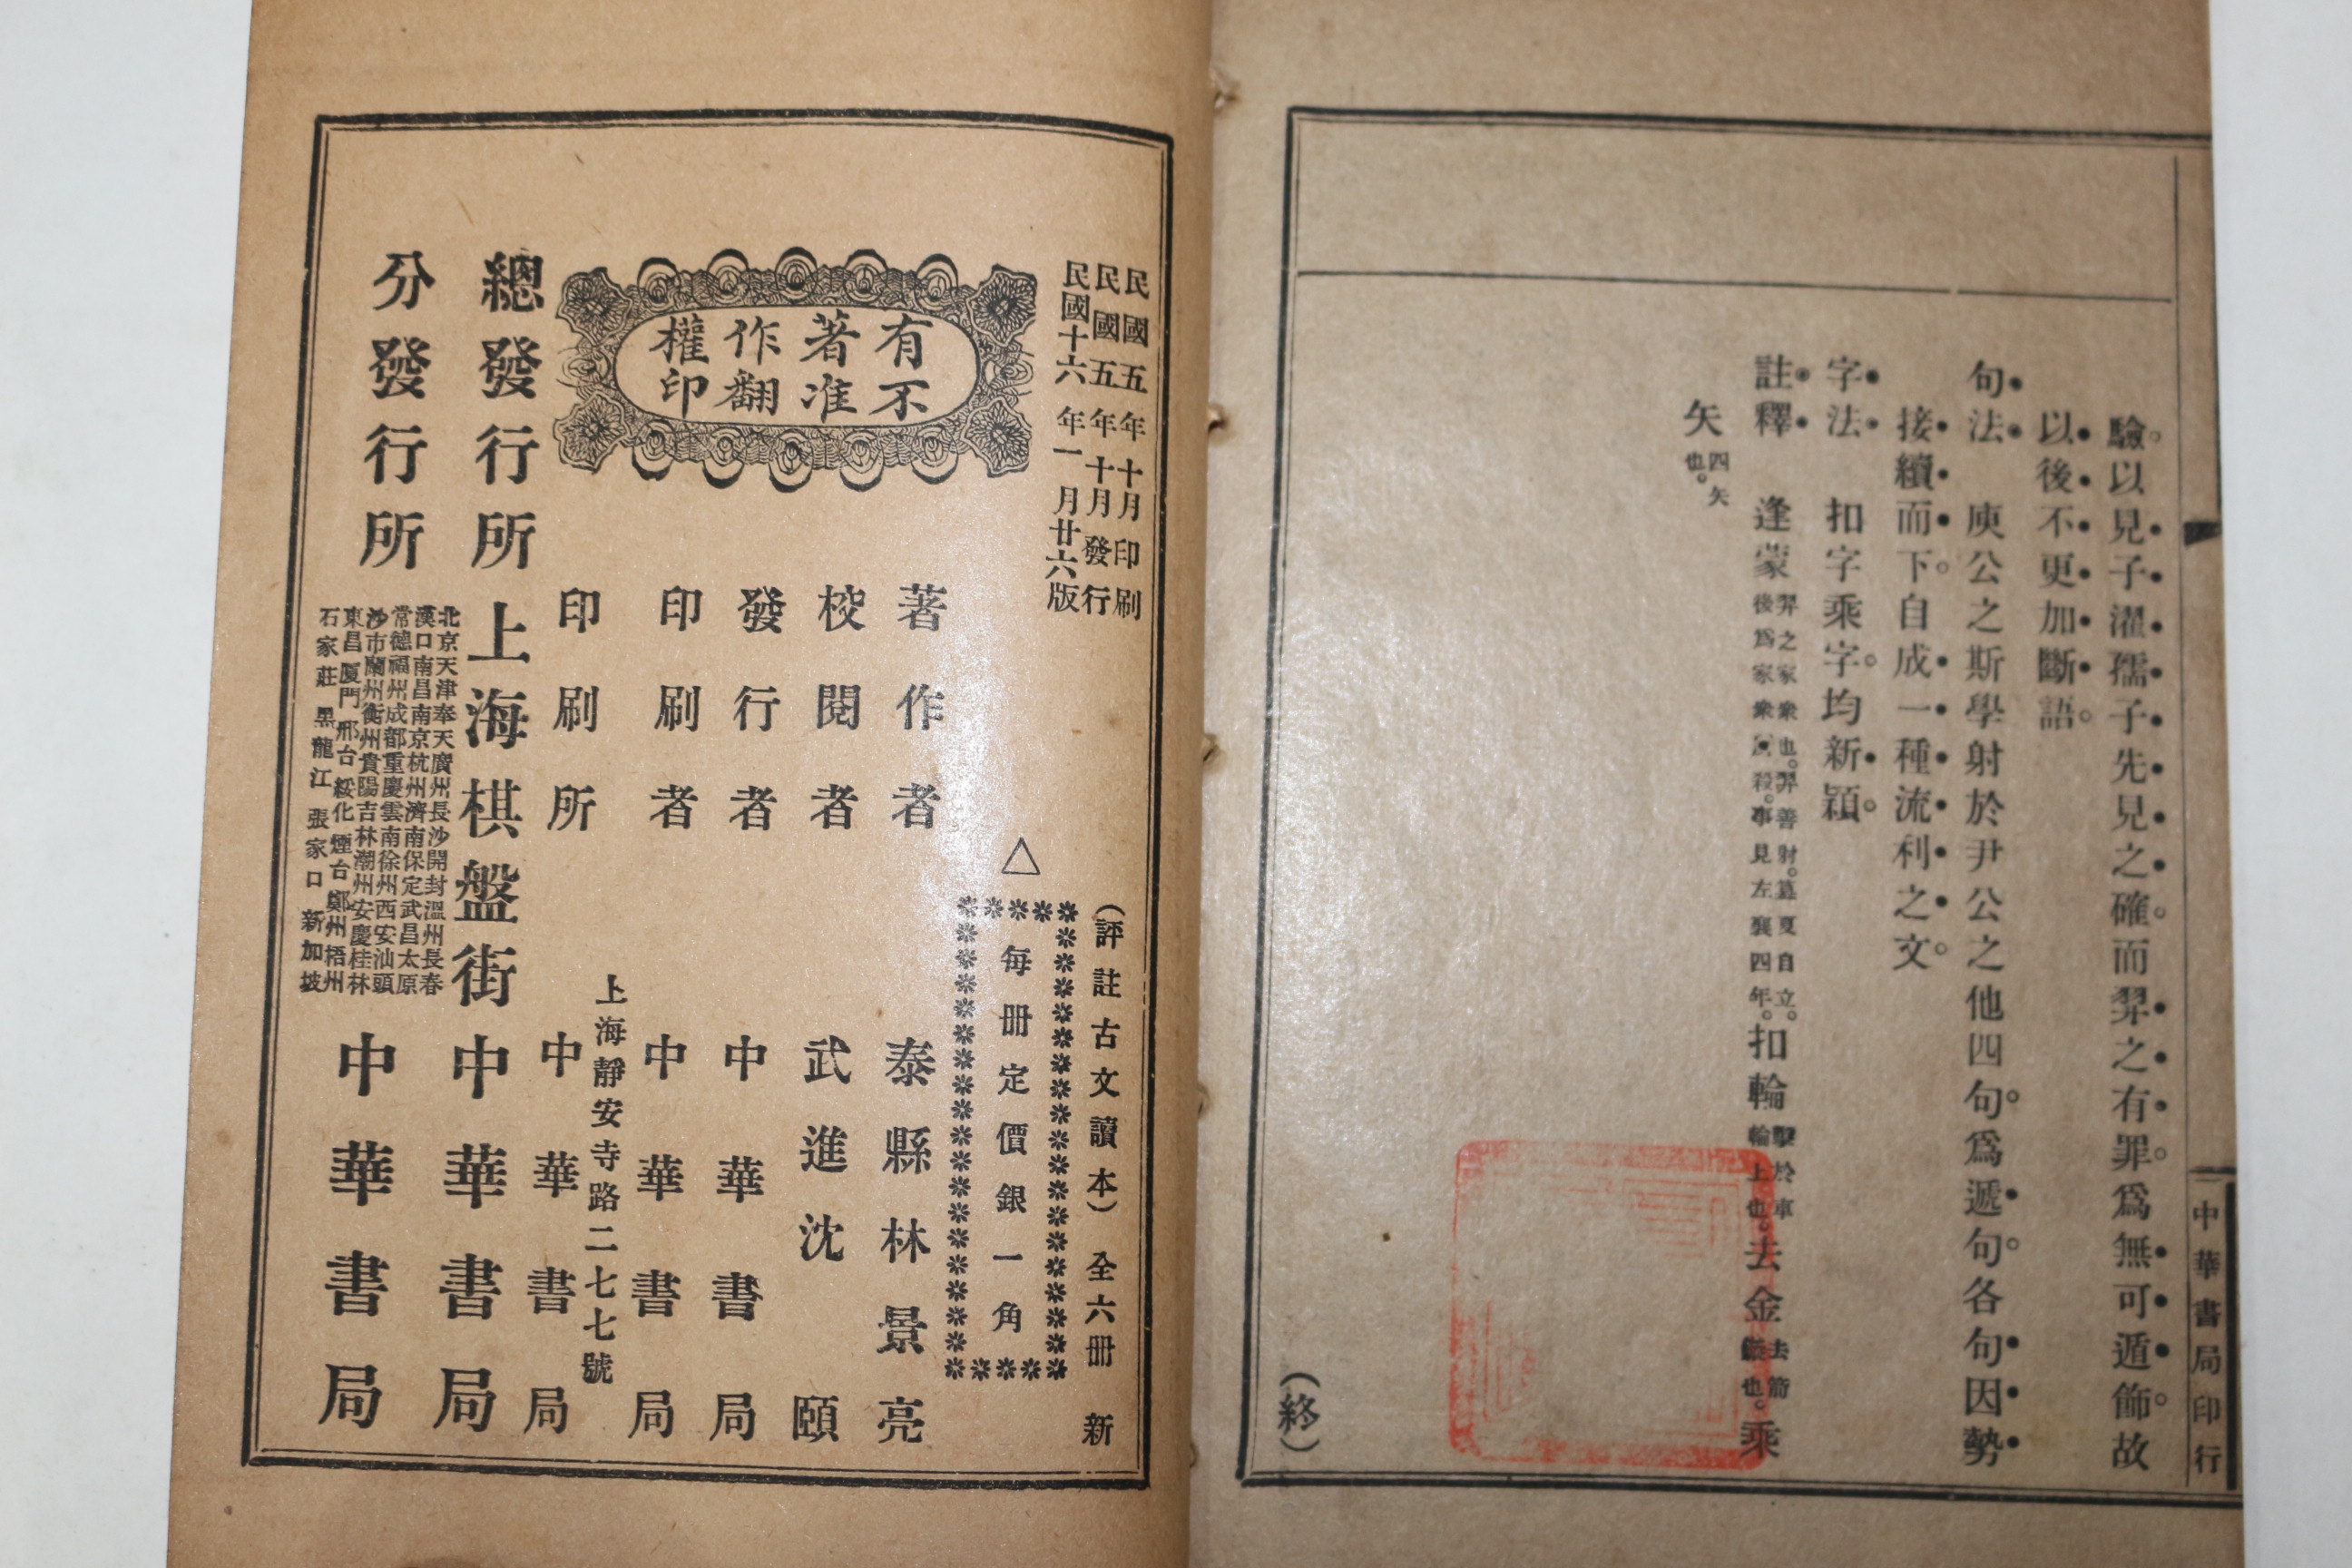 中華書局印行
驗以見子濯孺子先見之確而羿之有罪爲無可遁飾故
以後不更加斷語
句法　庾公之斯學射於尹公之他四句爲遞句各句因勢
接續而下自成一種流利之文
字法　扣字乘字均新穎
註釋　逢蒙羿之家衆也羿善射簒夏自立後爲家衆所殺事見左襄四年扣輪擊於車輪上也去金去箭鏃也乘
矢四矢也
(終)
民國五年十月印刷
民國五年十月發行
民國十六年一月廿六版
(評註古文讀本)全六冊　新
△每冊定價銀一角
有著作權
不准翻印
著作者　泰縣林景亮
校閱者　武進沈頤
發行者　中華書局
印刷者　中華書局
上海靜安寺路二七七號
印刷所　中華書局
總發行所　上海棋盤街　中華書局
分發行所
北京天津奉天廣州長沙開封溫州長春
漢口南昌南京杭州濟南保定武昌太原
常德福州成都重慶雲南徐州西安汕頭
沙市蘭州衡州貴陽吉林潮州安慶桂林
東昌厦門邢台綏化煙台鄭州梧州
石家莊黑龍江張家口新加坡
中華書局